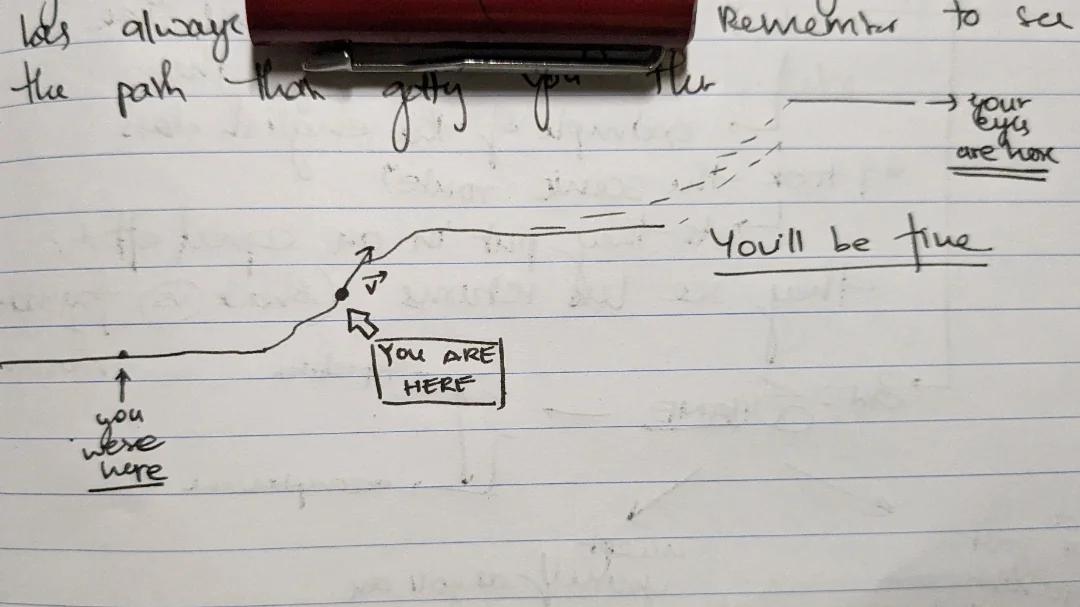 has always Remember to see
the path that getty you
your
eyes
are here
You'll be fine
v
YOU ARE
HERE
you
were
here